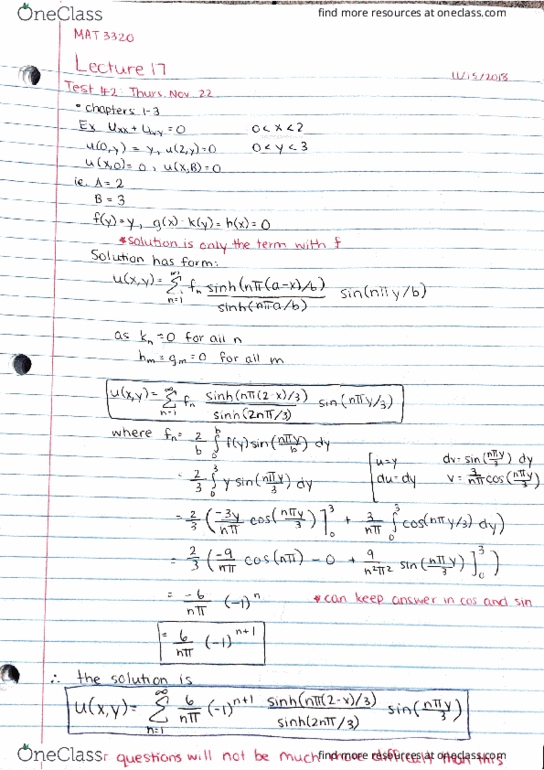 OneClass
find more resources at oneclass.com
MAT 3320
Lecture 17
11/15/2018
Test #2: Thurs. Nov. 22
• chapters 1-3
Ex uxx + uyy = 0    0 < x < 2
u(0,y) = y, u(2,y) = 0    0 < y < 3
u(x,0) = 0, u(x,B) = 0
ie. A = 2
B = 3
f(y) = y, g(x) = k(y) = h(x) = 0
*solution is only the term with f
Solution has form:
u(x,y) = ∞Σn=1 fn sinh(nπ(a-x)/b) / sinh(nπa/b) sin(nπy/b)
as kn = 0 for all n
hm = gm = 0 for all m
u(x,y) = ∞Σn=1 fn sinh(nπ(2-x)/3) / sinh(2nπ/3) sin(nπy/3)
where fn = 2/b ∫0^b f(y) sin(nπy/b) dy
= 2/3 ∫0^3 y sin(nπy/3) dy
u = y    dv = sin(nπy/3) dy
du = dy    v = 3/nπ cos(nπy/3)
= 2/3 (-3y/nπ cos(nπy/3) ]0^3 + 3/nπ ∫0^3 cos(nπy/3) dy)
= 2/3 (-9/nπ cos(nπ) - 0 + 9/n²π² sin(nπy/3) ]0^3)
= -6/nπ (-1)^n    *can keep answer in cos and sin
= 6/nπ (-1)^n+1
∴ the solution is
u(x,y) = ∞Σn=1 6/nπ (-1)^n+1 sinh(nπ(2-x)/3) / sinh(2nπ/3) sin(nπy/3)
OneClass
questions will not be much
find more resources at oneclass.com